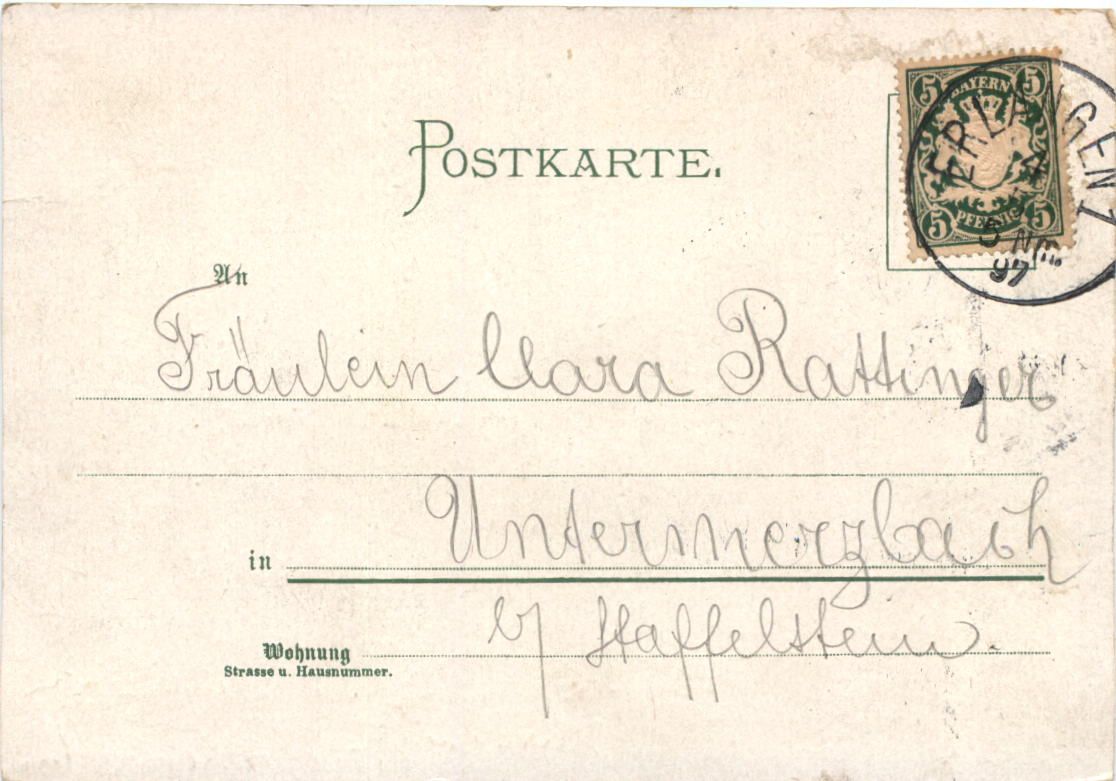 POSTKARTE.
5 BAYERN 5
5 PFENNIG 5
ERLANGEN 1
4
NM.
97
An
Fräulein Clara Rattinger
in Untermerzbach
b/ Staffelstein.
Wohnung
Strasse u. Hausnummer.